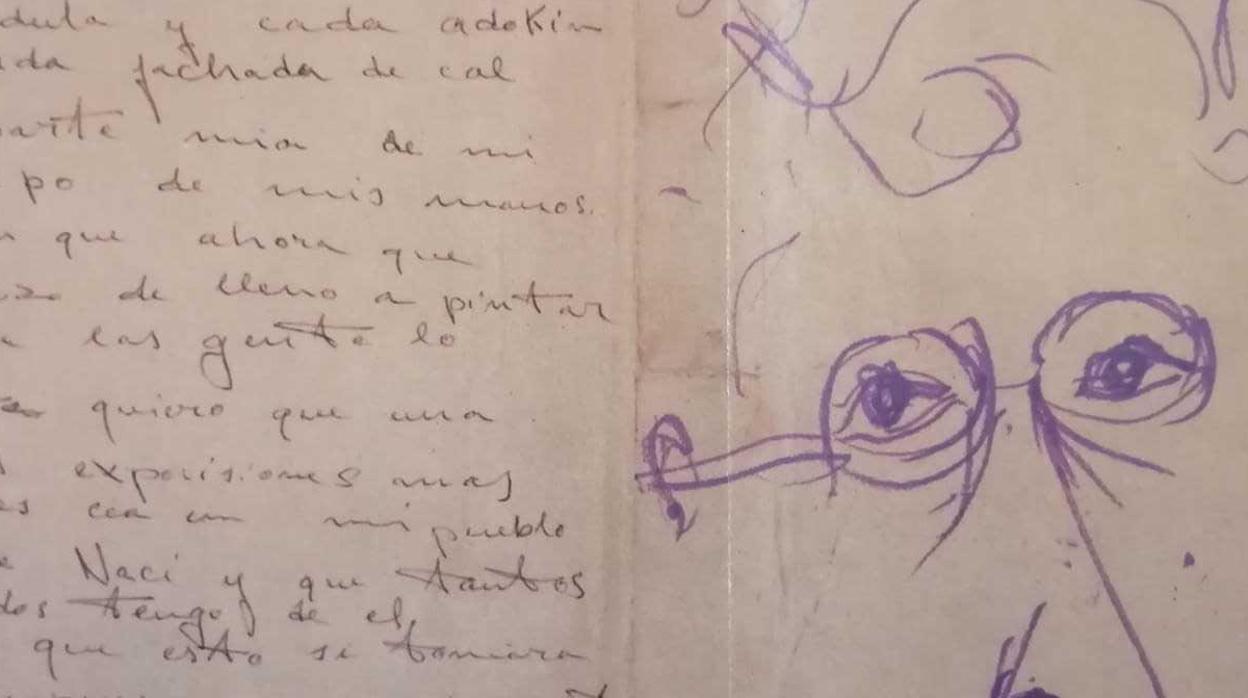 dula y cada adokin
da fachada de cal
parte mia de mi
po de mis manos.
que ahora que
de lleno a pintar
las gente lo
quiero que una
exposisiones mas
es cea en mi pueblo
Naci y que tantos
dos tengo de el,
que esto se tomara